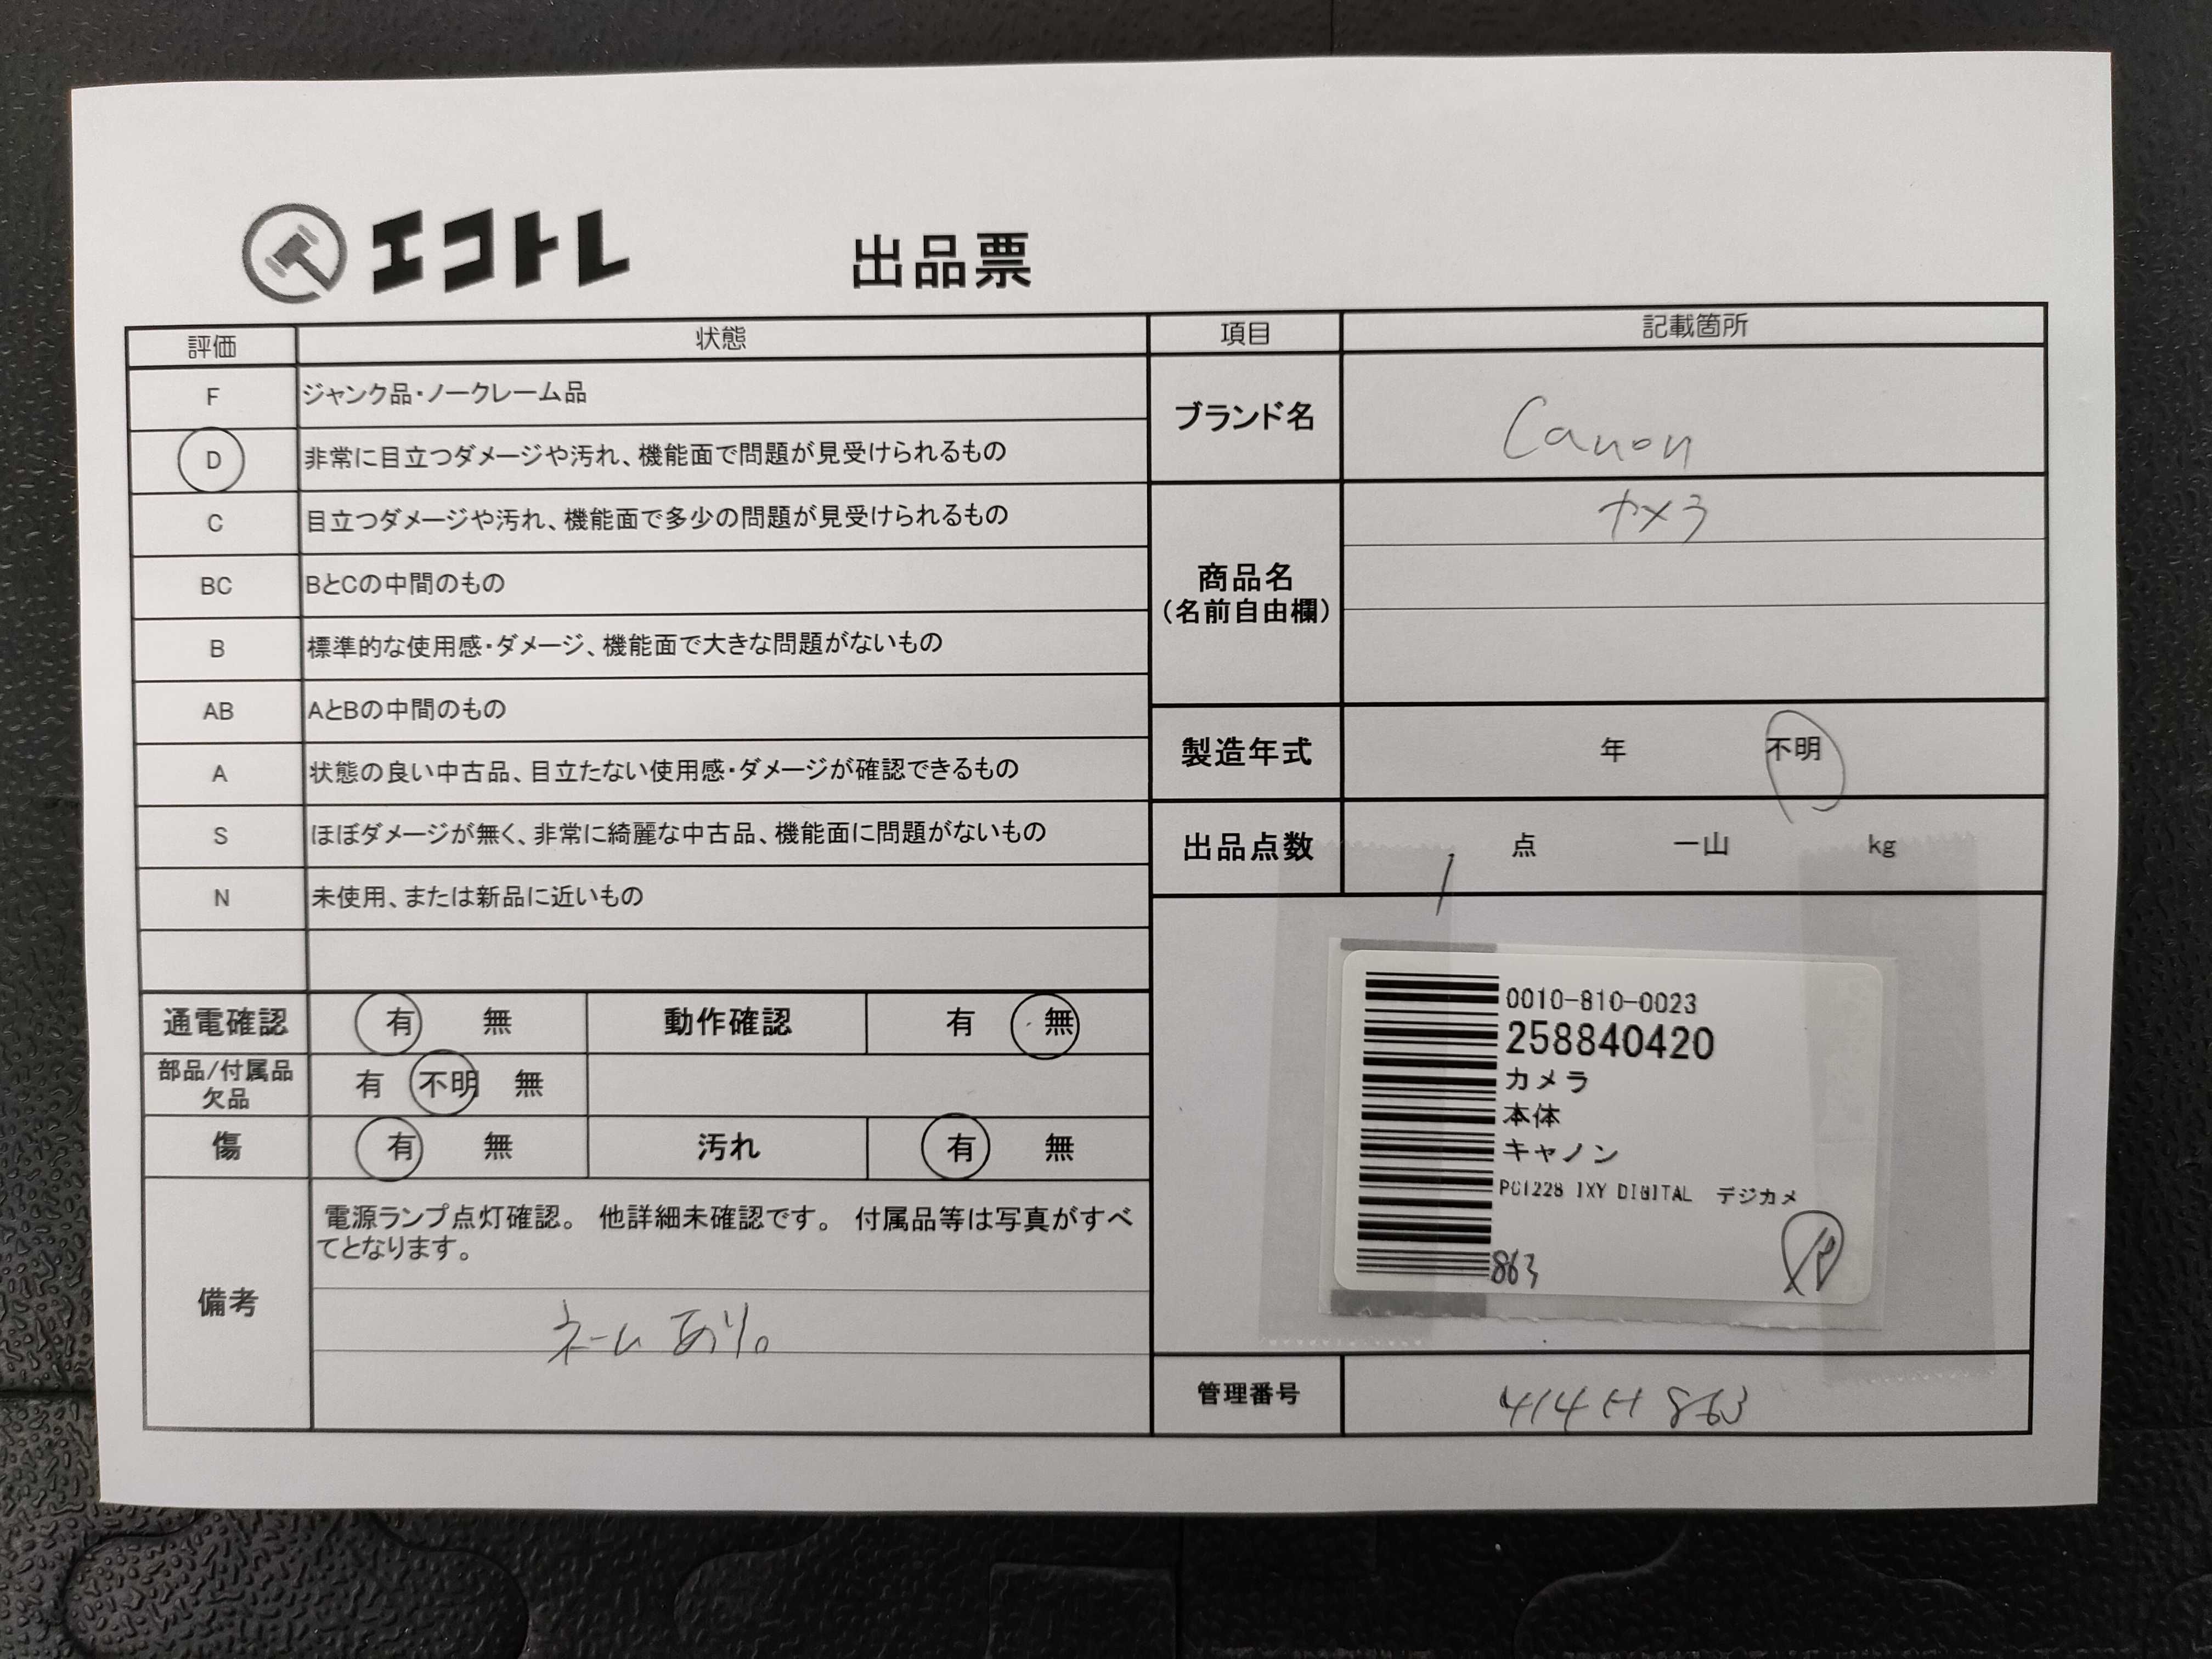 エコトレ 出品票
評価 状態
F ジャンク品・ノークレーム品
D 非常に目立つダメージや汚れ、機能面で問題が見受けられるもの
C 目立つダメージや汚れ、機能面で多少の問題が見受けられるもの
BC BとCの中間のもの
B 標準的な使用感・ダメージ、機能面で大きな問題がないもの
AB AとBの中間のもの
A 状態の良い中古品、目立たない使用感・ダメージが確認できるもの
S ほぼダメージが無く、非常に綺麗な中古品、機能面に問題がないもの
N 未使用、または新品に近いもの
通電確認 有 無 動作確認 有 無
部品/付属品
欠品 有 不明 無
傷 有 無 汚れ 有 無
備考
電源ランプ点灯確認。 他詳細未確認です。 付属品等は写真がすべ
てとなります。
ネームあり。
項目 記載箇所
ブランド名 Canon
商品名
(名前自由欄)
カメラ
製造年式 年 不明
出品点数 1 点 一山 kg
0010-810-0023
258840420
カメラ
本体
キャノン
PC1228 IXY DIGITAL デジカメ
863
管理番号 414 H 863